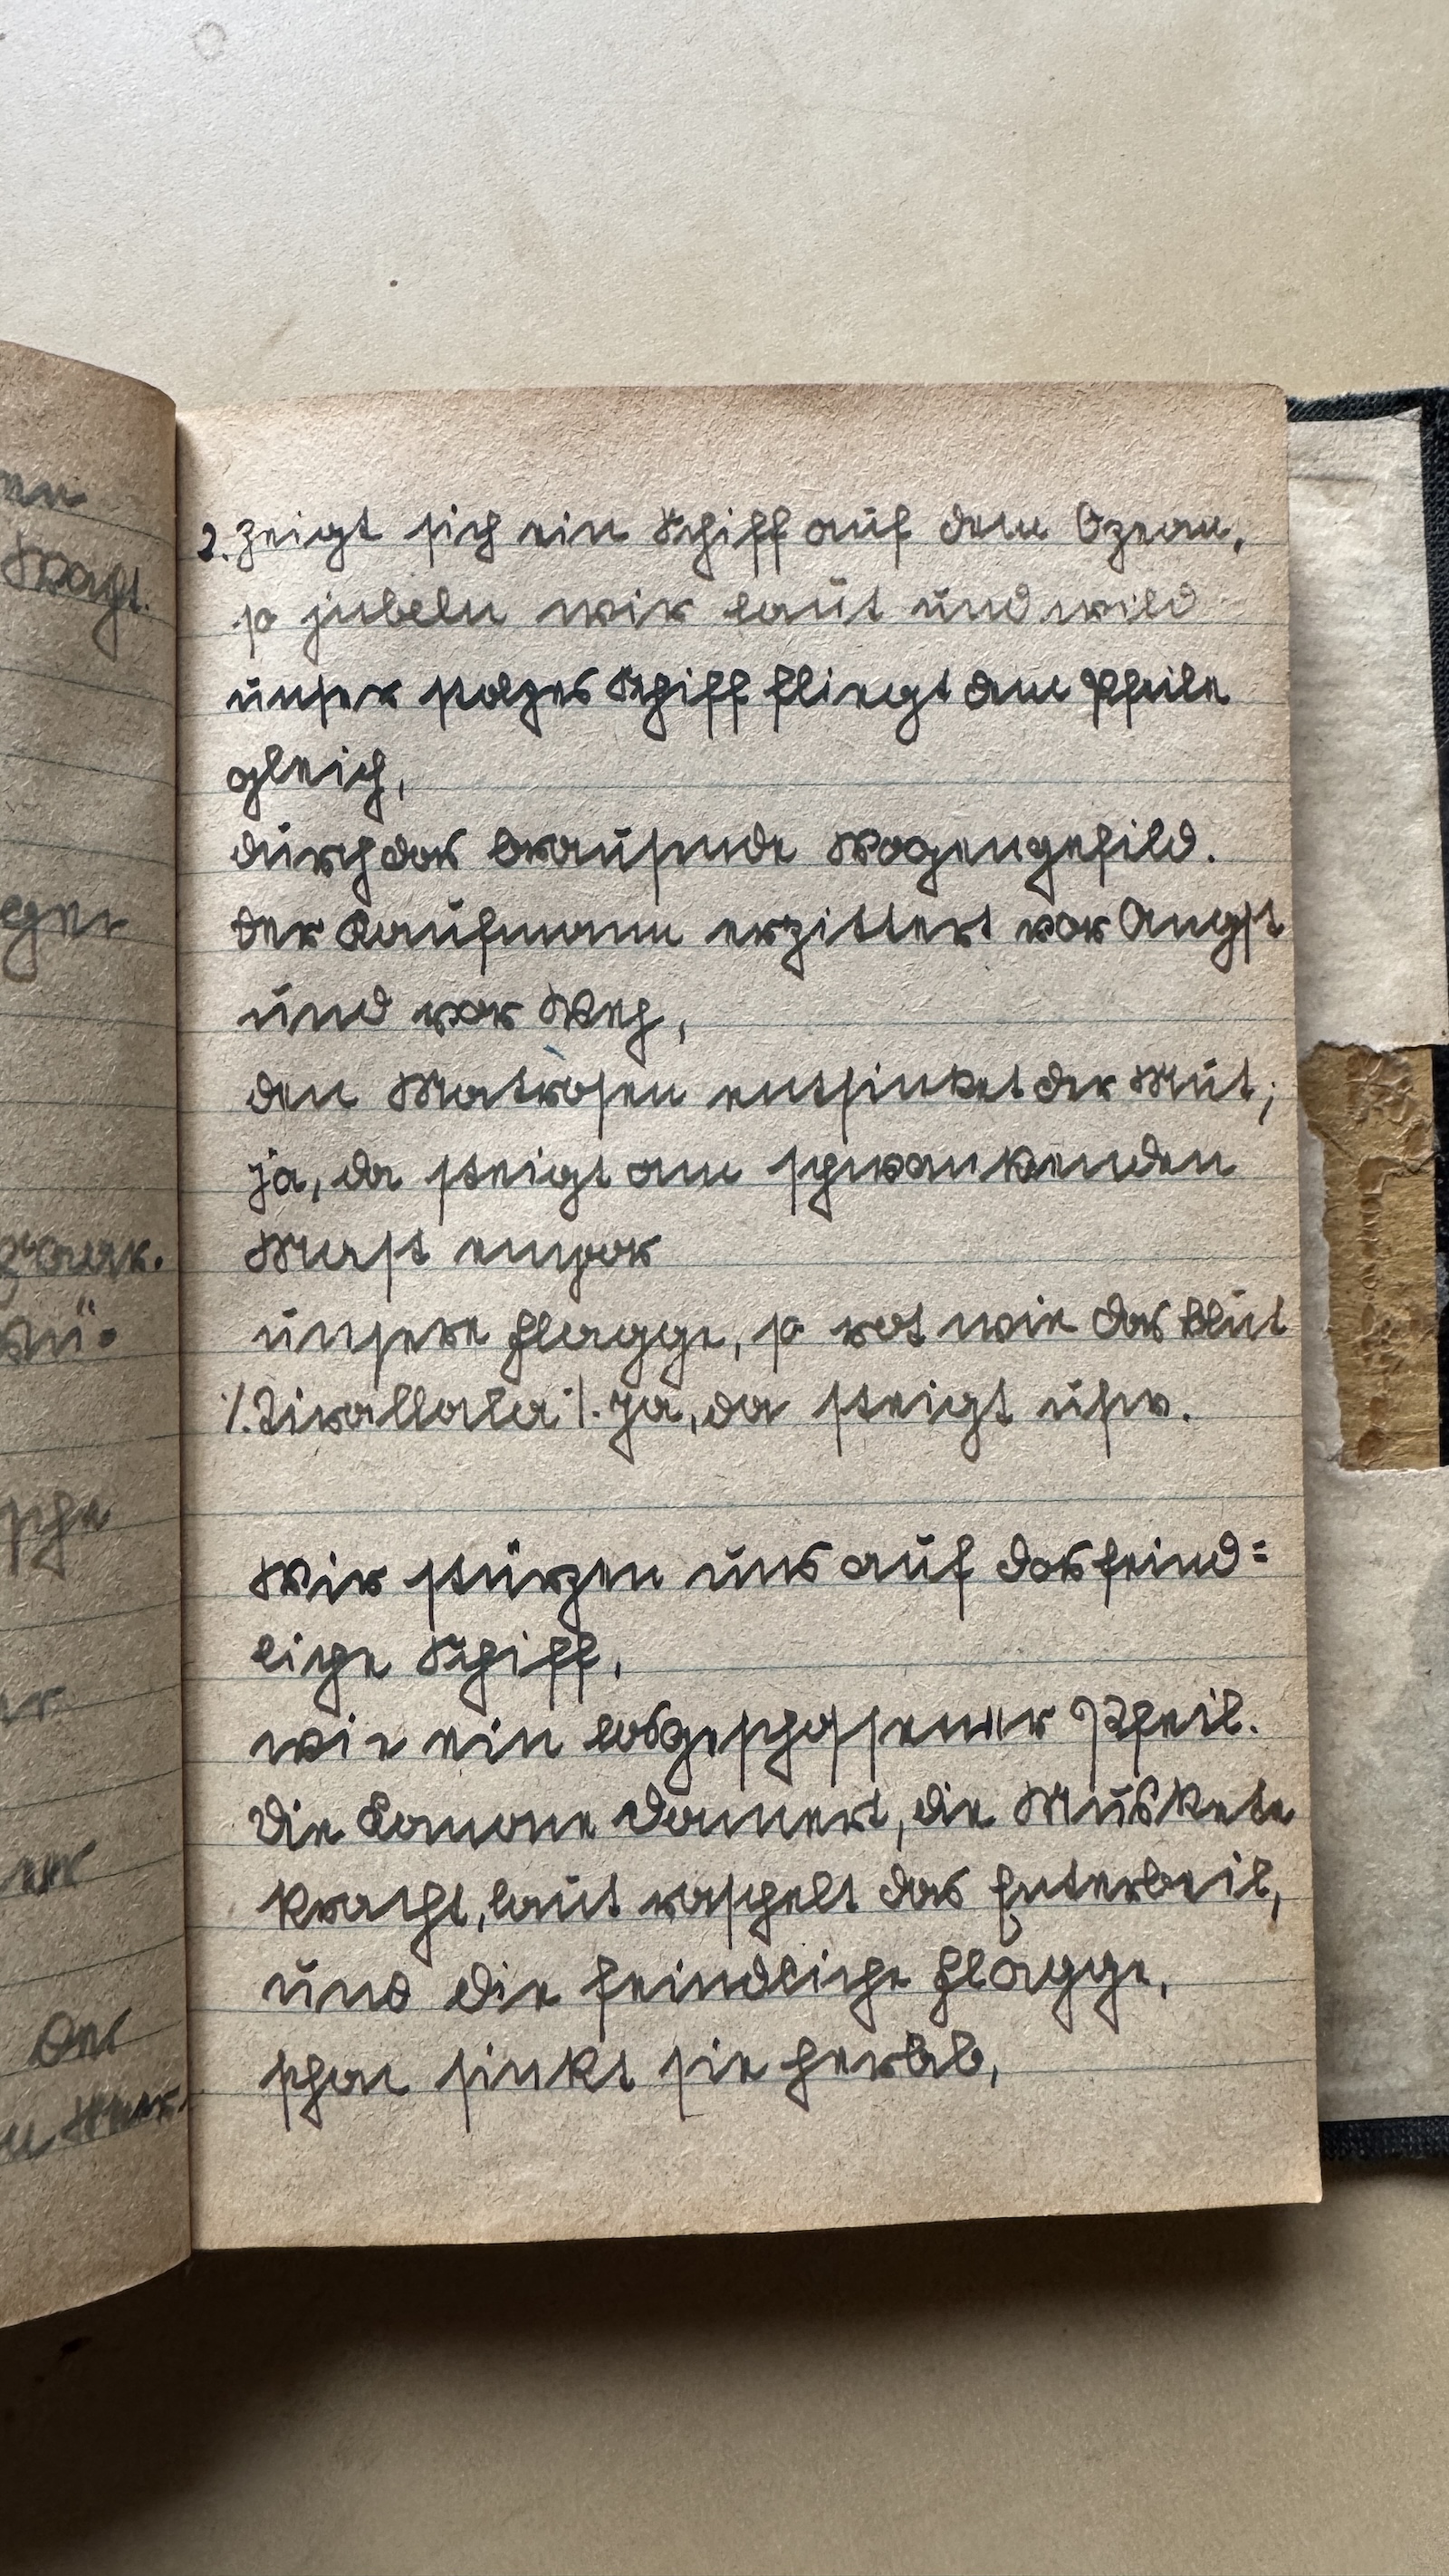 2. Zeigt sich ein Schiff auf dem Ozean,
so jubeln wir laut und wild
unser stolzes Schiff fliegt dem Pfeile
gleich,
durch das brausende Wogengefild.
Der Kaufmann erzittert vor Angst
und vor Weh,
den Matrosen entsinket der Mut;
ja, da steigt am schwankenden
Mast empor
unsere Flagge, so rot wie das Blut
:/. Tirallala :/. Ja, da steigt usw.
Wir stürzen uns auf das feind=
liche Schiff,
wie ein losgeschossener Pfeil.
Die Kanone donnert, die Muskete
kracht, laut raschelt das Enterbeil,
und die feindliche Flagge,
schon sinkt sie herab,